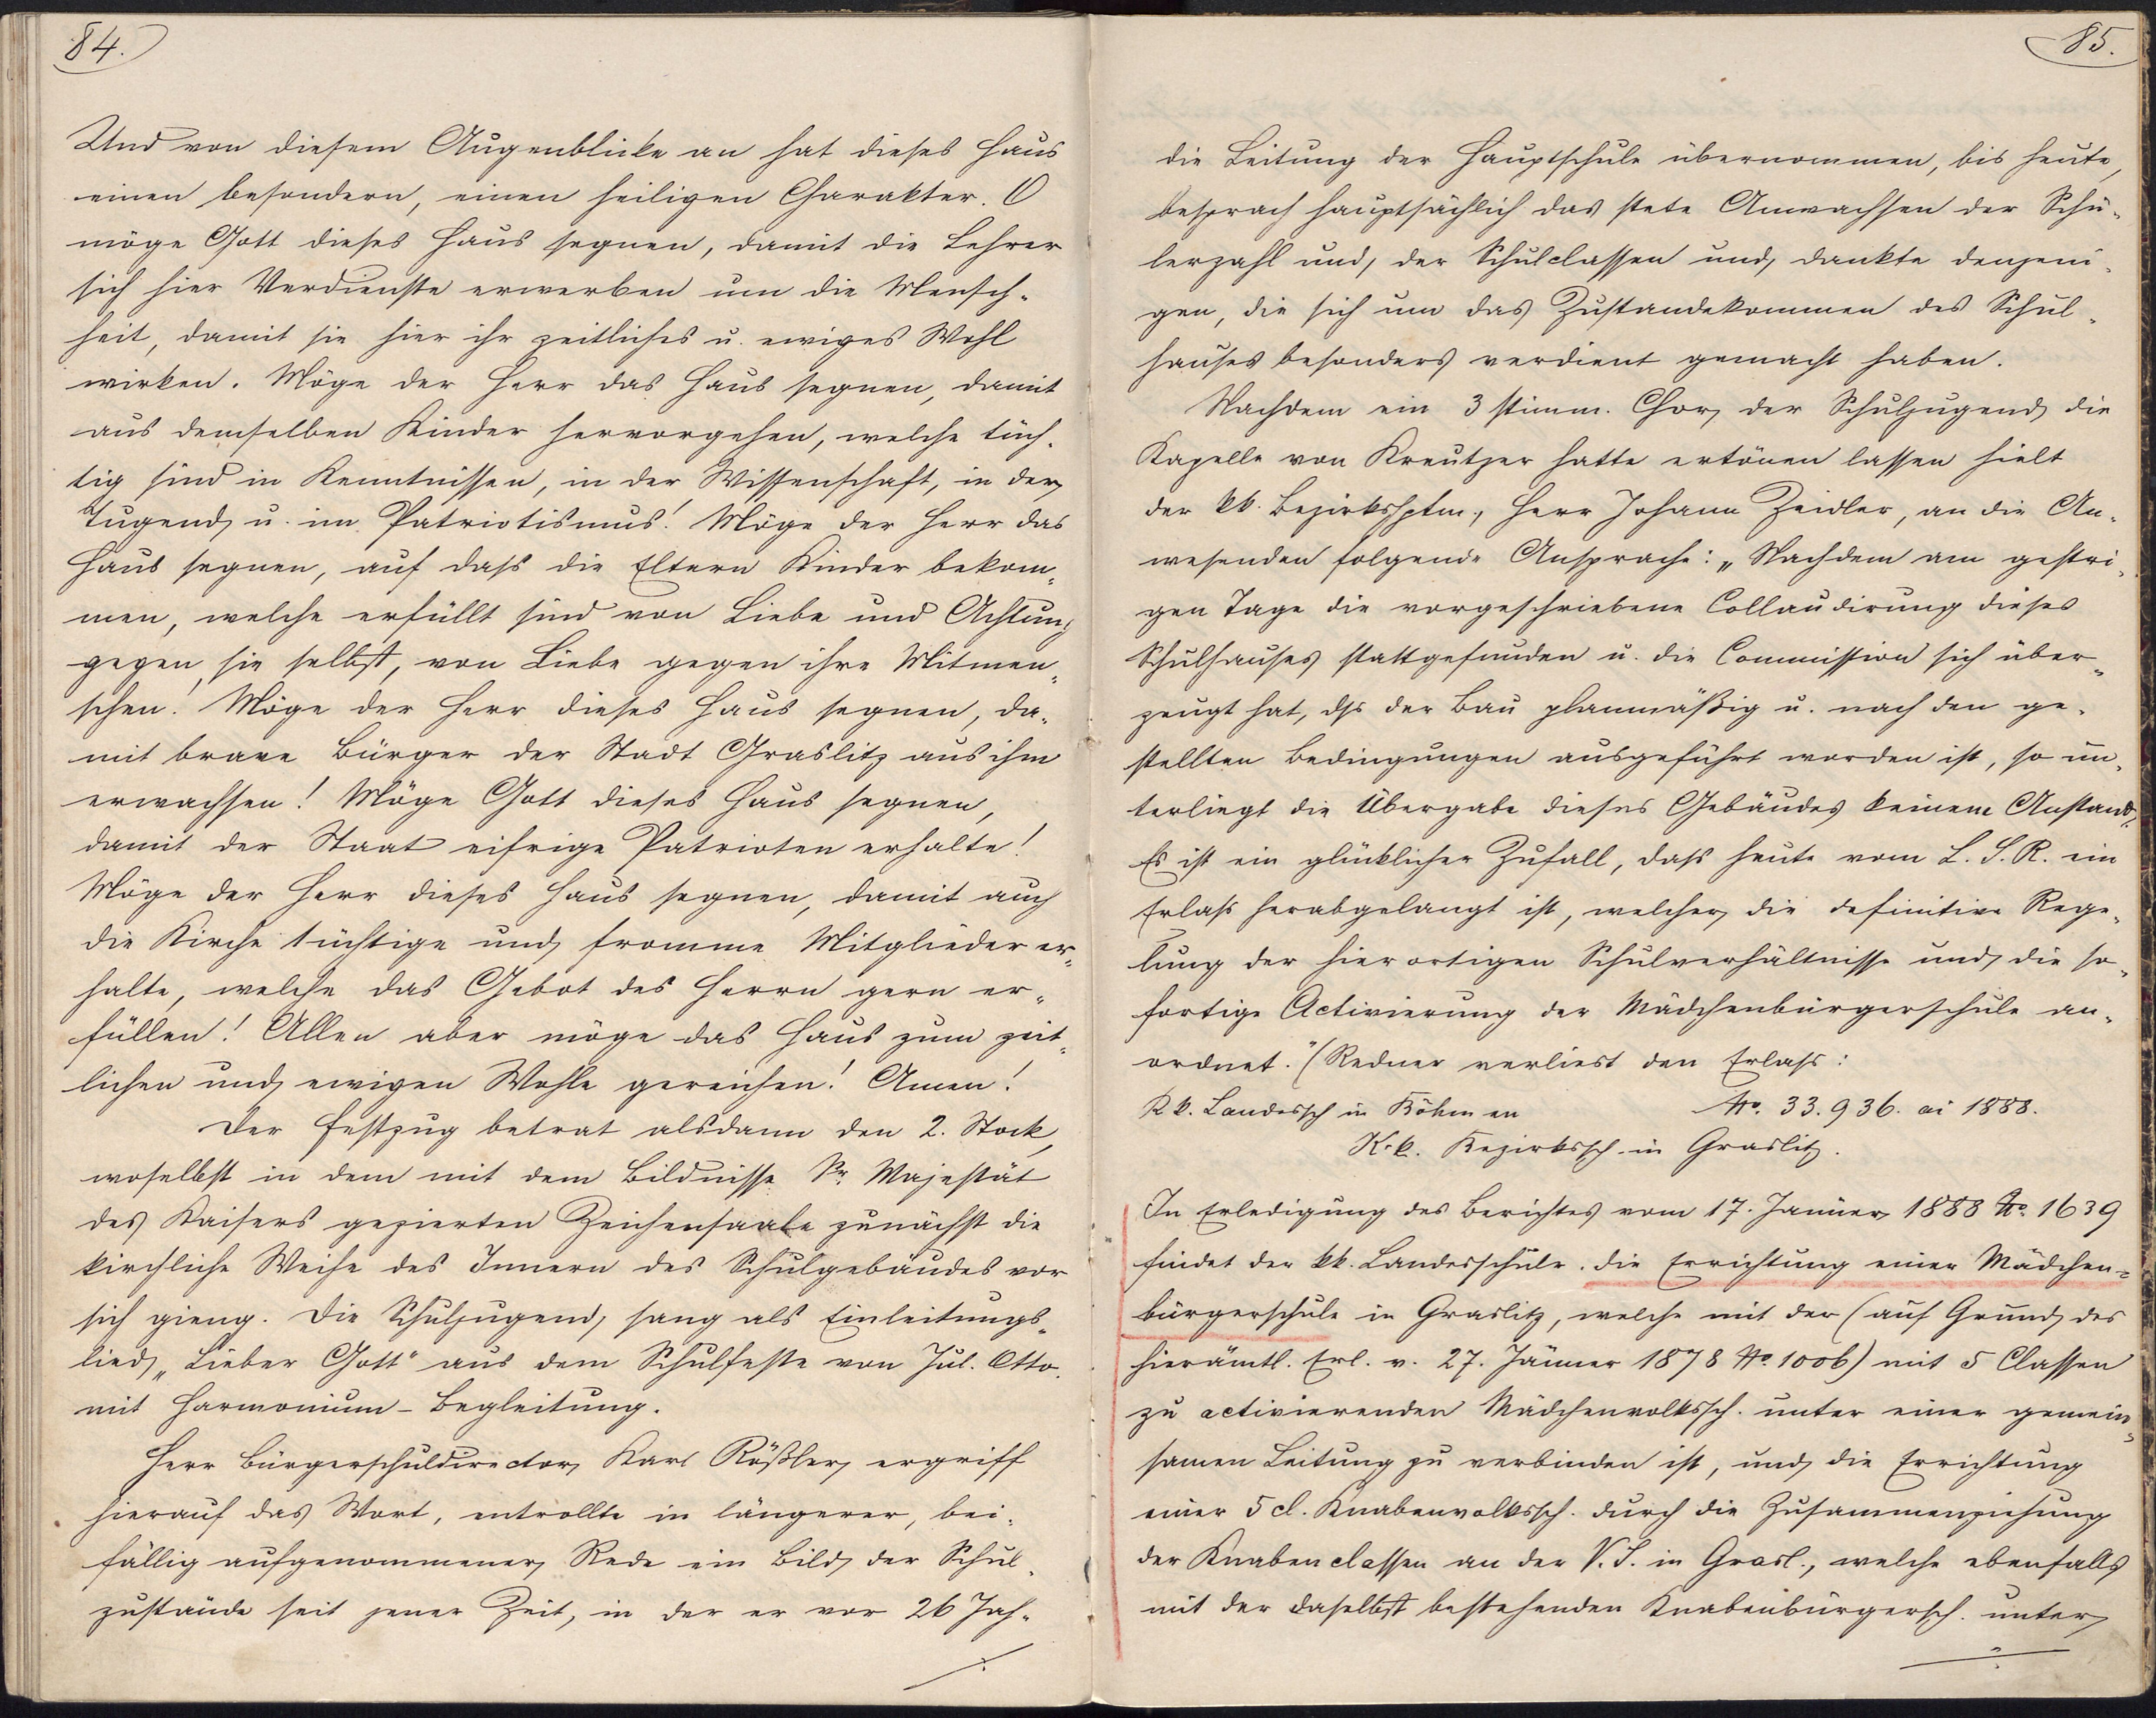 84.
Und von diesem Augenblicke an hat dieses Haus
einen besondern, einen heiligen Charakter. O
möge Gott dieses Haus segnen, damit die Lehrer
sich hier Verdienste erwerben um die Mensch-
heit, damit sie hier ihr zeitliches u. ewiges Wohl
wirken. Möge der Herr das Haus segnen, damit
aus demselben Kinder hervorgehen, welche tüch-
tig sind in Kenntnissen, in der Wissenschaft, in der
Tugend u. im Patriotismus! Möge der Herr das
Haus segnen, auf daß die Eltern Kinder bekom-
men, welche erfüllt sind von Liebe und Achtung
gegen sie selbst, von Liebe gegen ihre Mitmen-
schen! Möge der Herr dieses Haus segnen, da-
mit brave Bürger der Stadt Graslitz aus ihm
erwachsen! Möge Gott dieses Haus segnen,
damit der Staat eifrige Patrioten erhalte!
Möge der Herr dieses Haus segnen, damit auch
die Kirche tüchtige und fromme Mitglieder er-
halte, welche das Gebot des Herrn gern er-
füllen! Allen aber möge das Haus zum zeit-
lichen und ewigen Wohle gereichen! Amen!
Der Festzug betrat alsdann den 2. Stock,
woselbst in dem mit dem Bildnisse Sr. Majestät
des Kaisers gezierten Zeichensaale zunächst die
kirchliche Weihe des Innern des Schulgebäudes vor
sich gieng. Die Schuljugend sang als Einleitungs-
lied „Lieber Gott" aus dem Schulfeste von Jul. Otto.
mit Harmonium-Begleitung.
Herr Bürgerschuldirector Karl Rößler ergriff
hierauf das Wort, entrollte in längerer, bei-
fällig aufgenommener Rede ein Bild der Schul-
zustände seit jener Zeit, in der er vor 26 Jah-
./.
85.
die Leitung der Hauptschule übernommen, bis heute,
besprach hauptsächlich das stete Anwachsen der Schü-
lerzahl und der Schulclassen und dankte denjeni-
gen, die sich um das Zustandekommen des Schul-
hauses besonders verdient gemacht haben.
Nachdem ein 3 stimm. Chor der Schuljugend die
Kapelle von Kreutzer hatte ertönen lassen hielt
der kk. Bezirkshptm., Herr Johann Zeidler, an die An-
wesenden folgende Ansprache: „Nachdem am gestri-
gen Tage die vorgeschriebene Collaudirung dieses
Schulhauses stattgefunden u. die Commission sich über-
zeugt hat, dß der Bau planmäßig u. nach den ge-
stellten Bedingungen ausgeführt worden ist, so un-
terliegt die Übergabe dieses Gebäudes keinem Anstand.
Es ist ein glücklicher Zufall, daß heute vom L. S. R. ein
Erlaß herabgelangt ist, welcher die definitive Rege-
lung der hierortigen Schulverhältnisse und die so-
fortige Activierung der Mädchenbürgerschule an-
ordnet." (Redner verliest den Erlaß:
K k. Landessch in Böhmen No. 33.936. ai 1888.
K. k. Bezirkssch. in Graslitz.
In Erledigung des Berichtes vom 17. Januar 1888 No. 1639
findet der kk. Landesschulr. die Errichtung einer Mädchen-
bürgerschule in Graslitz, welche mit der (auf Grund des
hierämtl. Erl. v. 27. Jänner 1878 No. 1006) mit 5 Classen
zu activierenden Mädchenvolkssch. unter einer gemein-
samen Leitung zu verbinden ist, und die Errichtung
einer 5 cl. Knabenvolkssch. durch die Zusammenziehung
der Knabenclassen an der V. S. in Grasl., welche ebenfalls
mit der daselbst bestehenden Knabenbürgersch. unter
./.